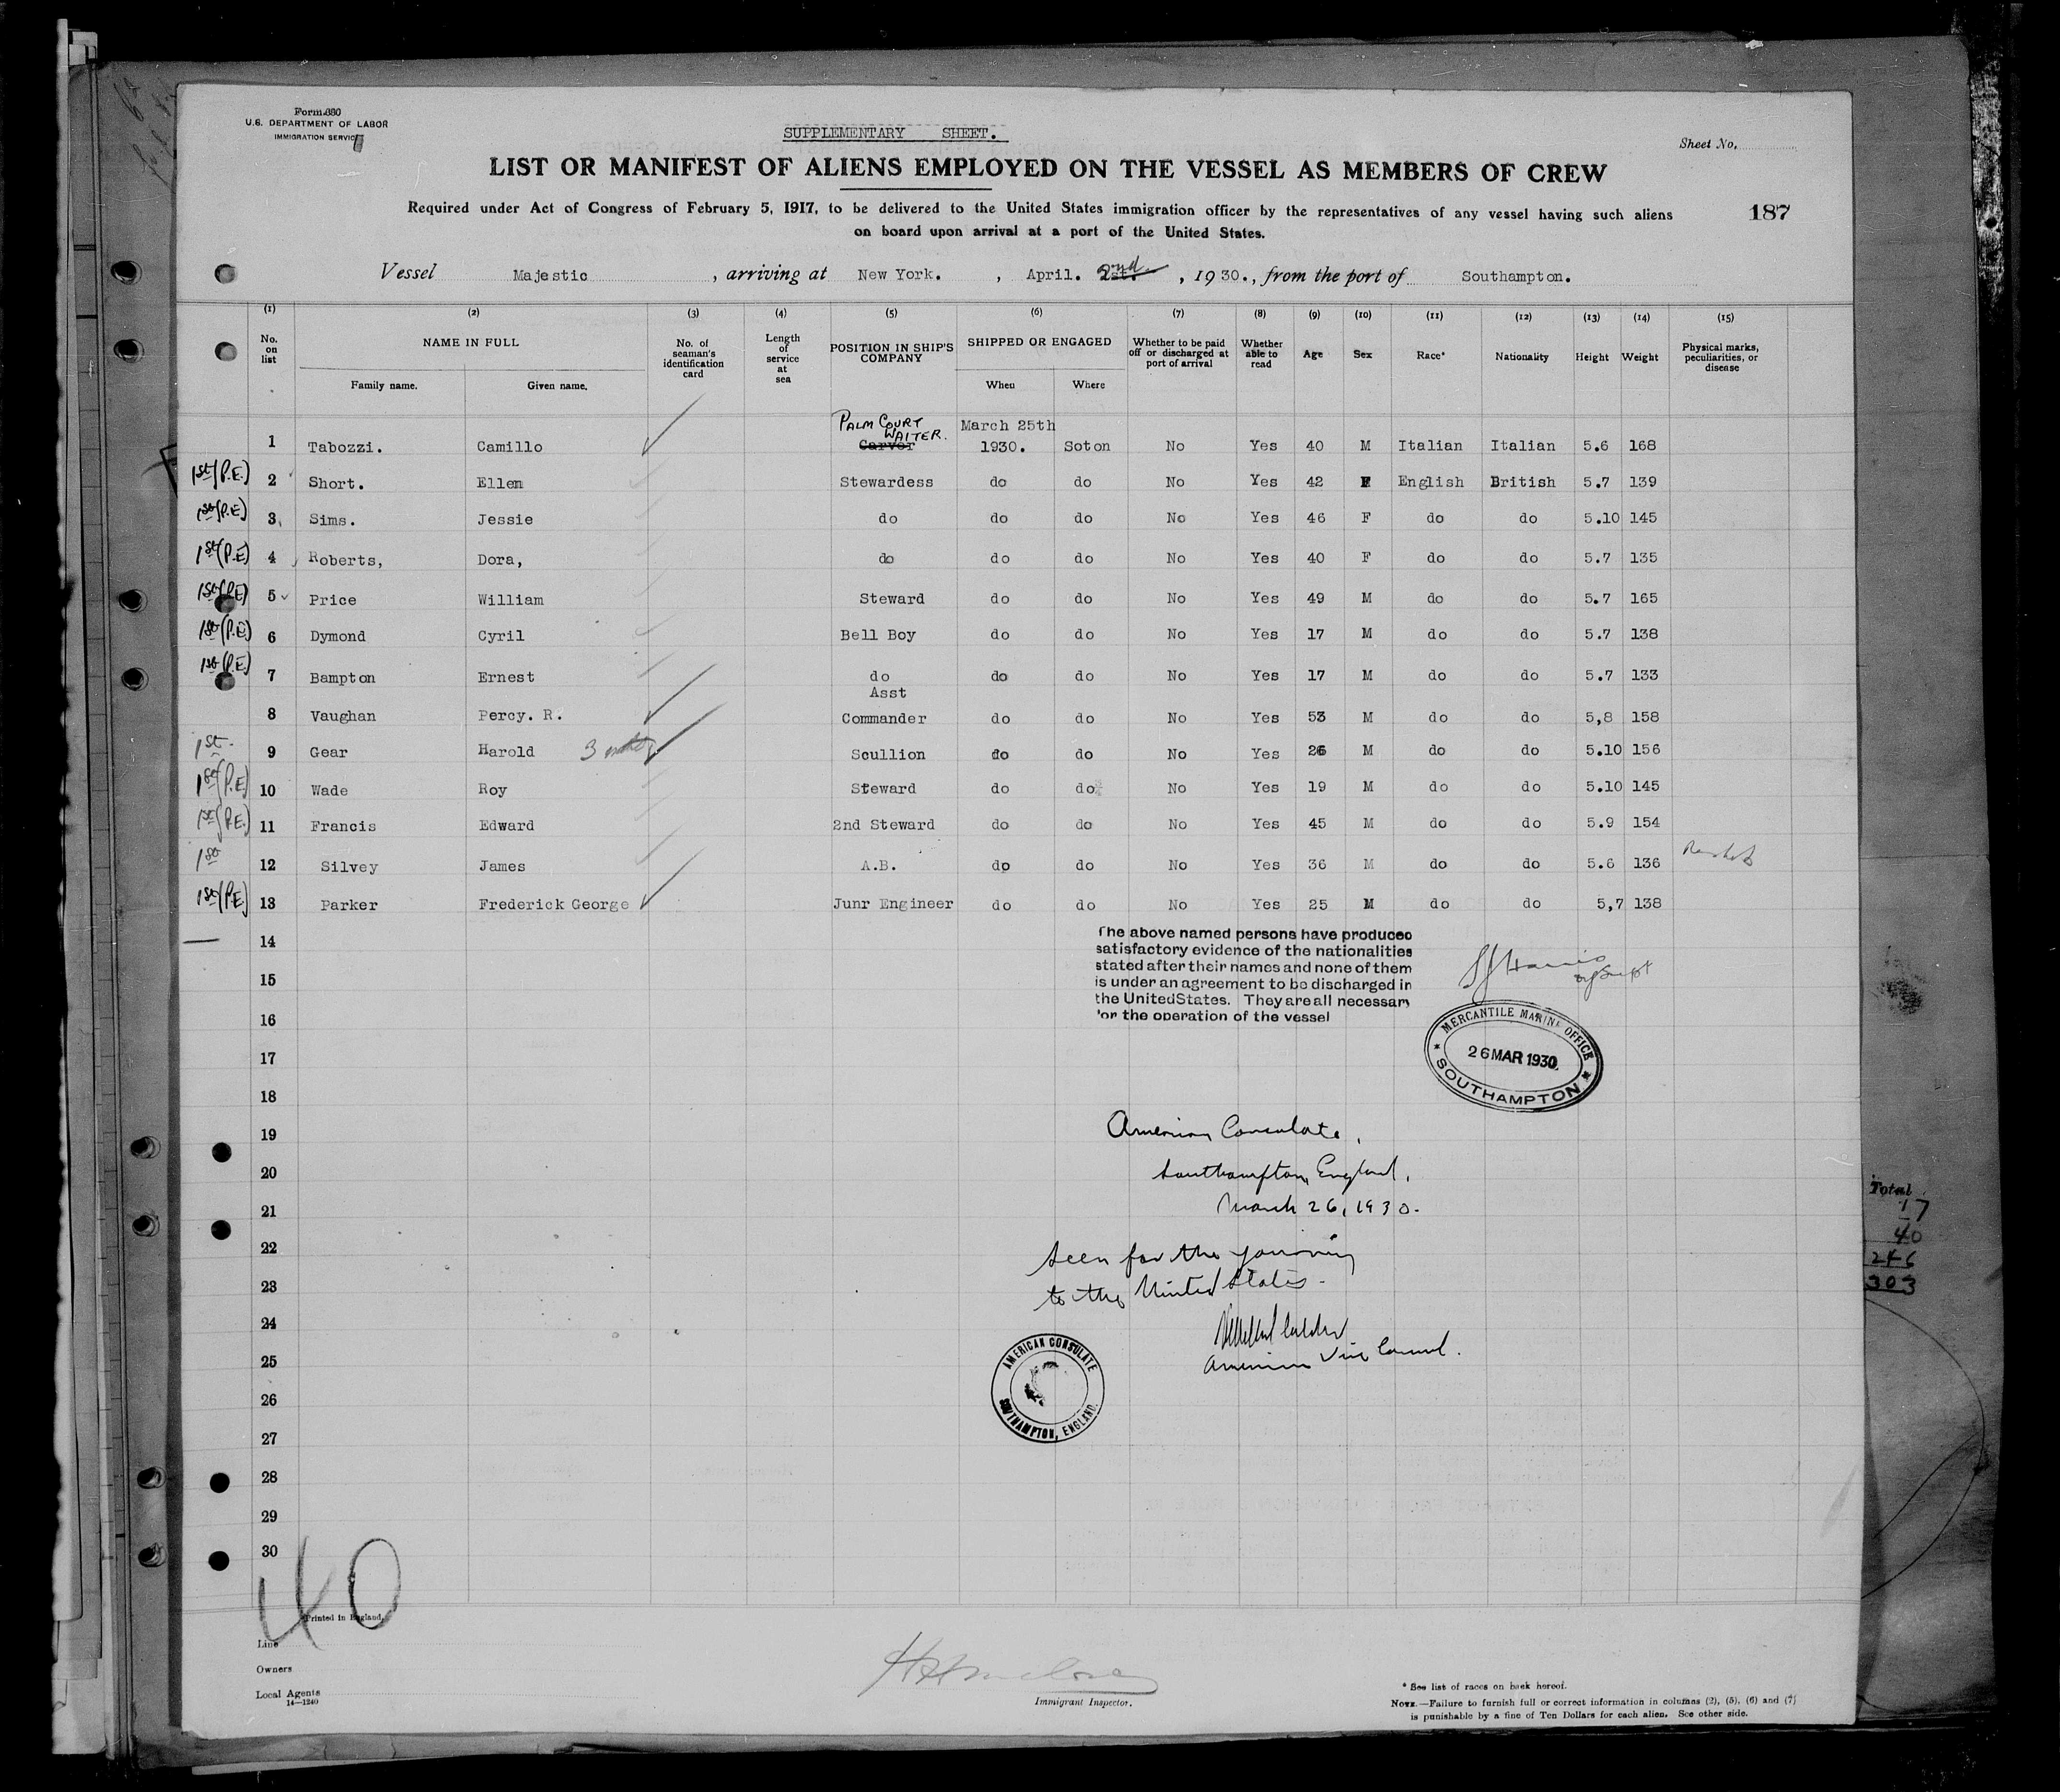 Form 680
U.S. DEPARTMENT OF LABOR
IMMIGRATION SERVICE
SUPPLEMENTARY SHEET.
Sheet No.
LIST OR MANIFEST OF ALIENS EMPLOYED ON THE VESSEL AS MEMBERS OF CREW
Required under Act of Congress of February 5, 1917, to be delivered to the United States immigration officer by the representatives of any vessel having such aliens
on board upon arrival at a port of the United States.
187
Vessel Majestic, arriving at New York., April. 2nd, 1930., from the port of Southampton.
(1) (2) (3) (4) (5) (6) (7) (8) (9) (10) (11) (12) (13) (14) (15)
No. on list NAME IN FULL Family name. Given name. No. of seaman's identification card Length of service at sea POSITION IN SHIP'S COMPANY SHIPPED OR ENGAGED When Where Whether to be paid off or discharged at port of arrival Whether able to read Age Sex Race* Nationality Height Weight Physical marks, peculiarities, or disease
PALM COURT WAITER. March 25th
1 Tabozzi. Camillo Carver 1930. Soton No Yes 40 M Italian Italian 5.6 168
1st (P.E.) 2 Short. Ellen Stewardess do do No Yes 42 F English British 5.7 139
1st (P.E) 3 Sims. Jessie do do do No Yes 46 F do do 5.10 145
1st (P.E) 4 Roberts, Dora, do do do No Yes 40 F do do 5.7 135
1st (P.E) 5 Price William Steward do do No Yes 49 M do do 5.7 165
1st (P.E.) 6 Dymond Cyril Bell Boy do do No Yes 17 M do do 5.7 138
1st (P.E.) 7 Bampton Ernest do do do No Yes 17 M do do 5.7 133
Asst
8 Vaughan Percy. R. Commander do do No Yes 53 M do do 5,8 158
1st. 9 Gear Harold 3 Scullion do do No Yes 26 M do do 5.10 156
1st (P.E) 10 Wade Roy Steward do do No Yes 19 M do do 5.10 145
1st (P.E.) 11 Francis Edward 2nd Steward do do No Yes 45 M do do 5.9 154
1st 12 Silvey James A.B. do do No Yes 36 M do do 5.6 136
1st (P.E.) 13 Parker Frederick George Junr Engineer do do No Yes 25 M do do 5,7 138
14
15
16
17
18
19
20
21
22
23
24
25
26
27
28
29
30
The above named persons have produced
satisfactory evidence of the nationalities
stated after their names and none of them
is under an agreement to be discharged in
the United States. They are all necessary
for the operation of the vessel
MERCANTILE MARINE OFFICE
26 MAR 1930
SOUTHAMPTON
American Consulate,
Southampton, England.
March 26, 1930.
Seen for the journey
to the United States.
American Vice Consul.
AMERICAN CONSULATE
SOUTHAMPTON, ENGLAND.
Total
17
40
246
303
40
Printed in England.
Line
Owners
Local Agents
14—1240
Immigrant Inspector.
* See list of races on back hereof.
NOTE.—Failure to furnish full or correct information in columns (2), (5), (6) and (7)
is punishable by a fine of Ten Dollars for each alien. See other side.